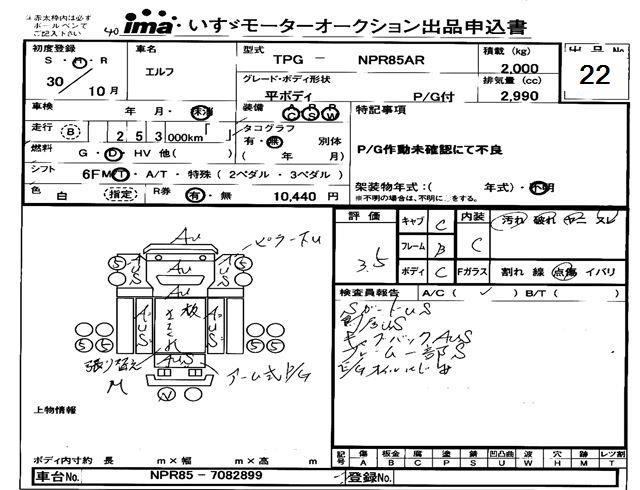 赤太枠内は必ず
ボールペンで
ご記入下さい
40
ima いすゞモーターオークション出品申込書
初度登録
S・H・R
30 10 月
車名
エルフ
型式
TPG － NPR85AR
グレード・ボディ形状
平ボディ P/G付
積載 (kg)
2,000
排気量 (cc)
2,990
出品No
22
車検 年 月・未消
装備 AC PS PW
特記事項
P/G作動未確認にて不良
走行 B 253 000km
タコグラフ
有・無 別体
( 年 月)
燃料 G・D・HV 他( )
シフト 6F MT・A/T・特殊(2ペダル・3ペダル)
架装物年式：( 年式)・不明
※不明の場合は、不明に○をする。
色 白 指定 R券 有・無 10,440 円
評価
3.5
キャブ C
フレーム B
ボディ C
内装
C
汚れ 破れ ヤニ スレ
Fガラス 割れ 線 点傷 イバリ
検査員報告 A/C ( ✓ ) B/T ( )
キャブバックAUS
フレーム一部S
AU
ピラーAU
AU
AUS
5
AU
AUS
AUS
AUS
張り替え
M
アーム式P/G
上物情報
ボディ内寸約 長 m×幅 m×高 m
記号 傷A 板金B 腐C 塗P 錆S 凹凸曲U 波W 穴H 跡M レツ割T
車台No. NPR85－7082899
登録No.